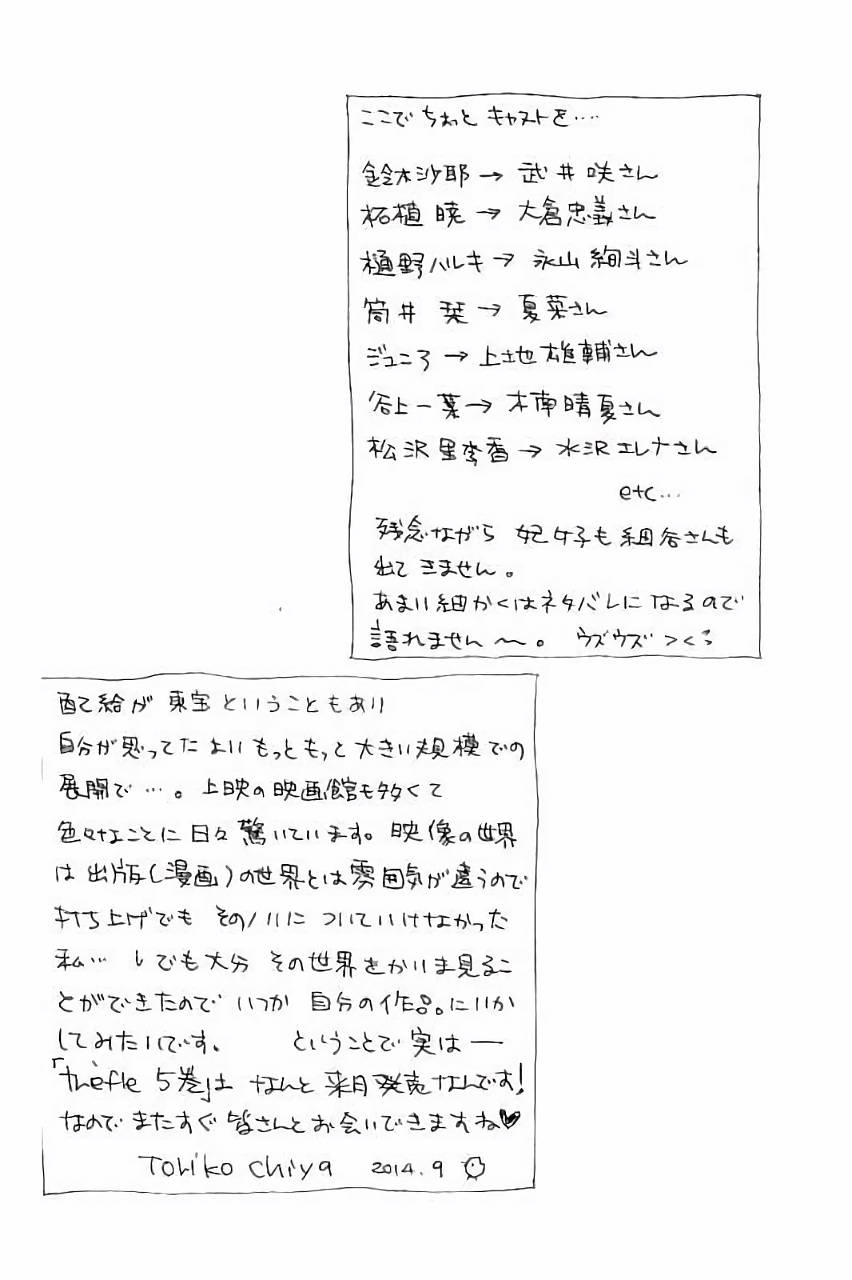 ここで ちょっと キャストを‥‥
鈴木沙耶→武井咲さん
柘植 暁→大倉忠義さん
樋野ハルキ→永山絢斗さん
筒井 栞→夏菜さん
ジュニア→上地雄輔さん
谷上一葉→木南晴夏さん
松沢里李香→水沢エレナさん
etc…
残念ながら 妃女子も細谷さんも
出てきません。
あまり細かくはネタバレになるので
語れません〜。 ウズウズ
配給が 東宝ということもあり
自分が思ってたよりもっともっと大きい規模での
展開で…。上映の映画館も多くて
色々なことに日々驚いています。映像の世界
は出版(漫画)の世界とは雰囲気が違うので
打ち上げでも そのノリについていけなかった
私… でも大分 その世界をかいま見るこ
とができたので いつか 自分の作品。にいか
してみたいです。 ということで実は―
「thèfle 5巻」は なんと来月発売なんです!
なので またすぐ皆さんとお会いできますね♥
Toriko chiya 2014.9